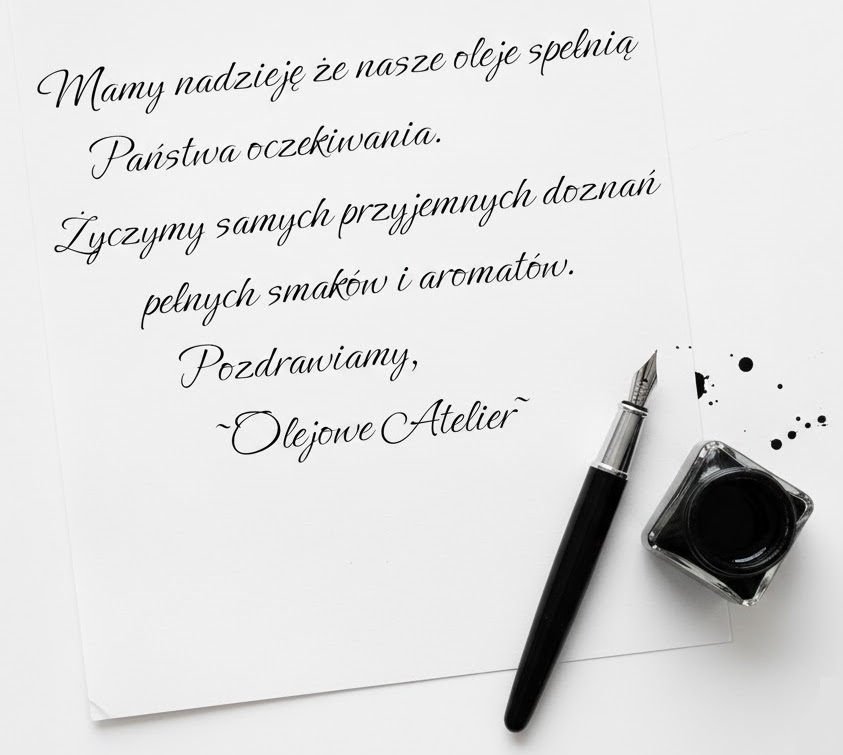 Mamy nadzieję że nasze oleje spełnią
Państwa oczekiwania.
Życzymy samych przyjemnych doznań
pełnych smaków i aromatów.
Pozdrawiamy,
~Olejowe Atelier~